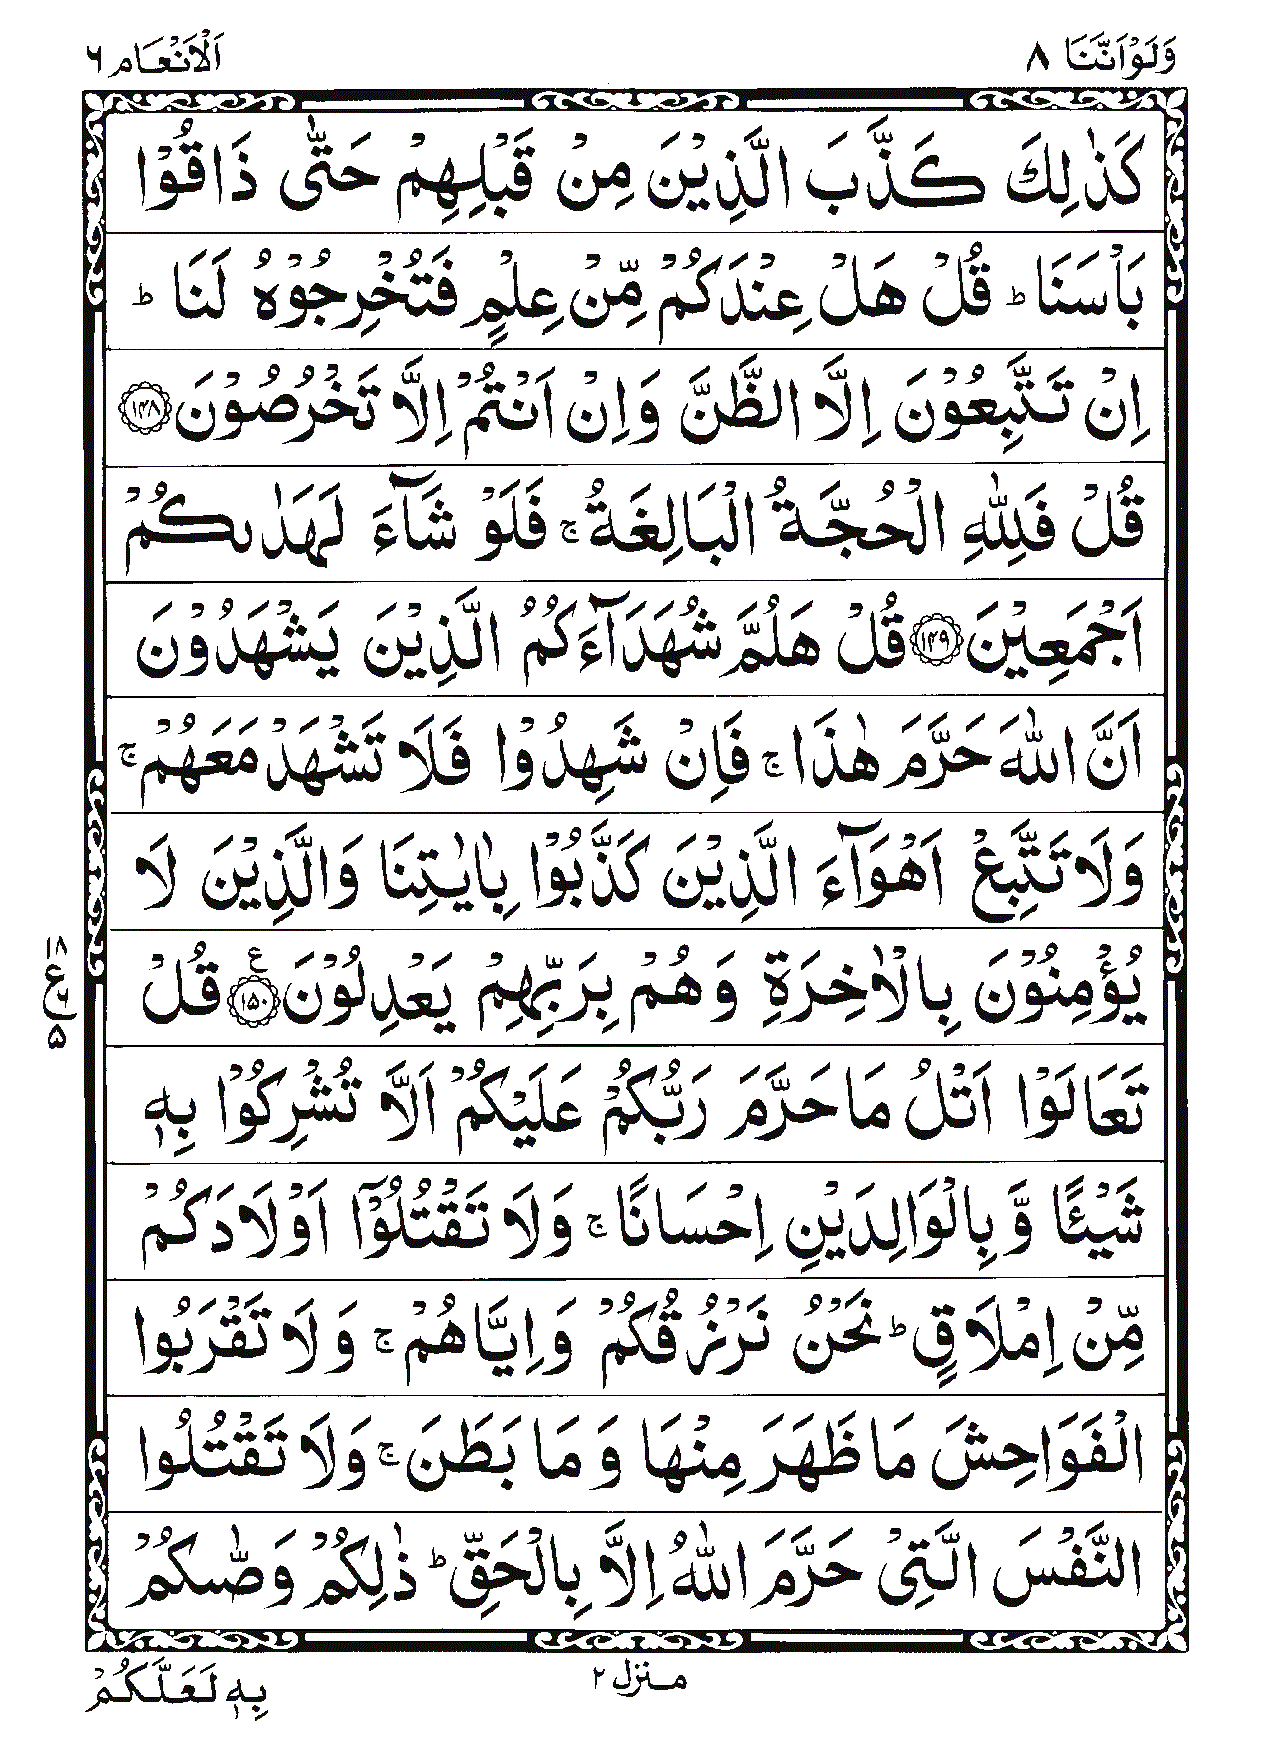 وَلَوْاَنَّنَا ٨
اَلْاَنْعَام ٦
كَذٰلِكَ كَذَّبَ الَّذِيْنَ مِنْ قَبْلِهِمْ حَتّٰى ذَاقُوْا
بَاْسَنَا ؕ قُلْ هَلْ عِنْدَكُمْ مِّنْ عِلْمٍ فَتُخْرِجُوْهُ لَنَا ؕ
اِنْ تَتَّبِعُوْنَ اِلَّا الظَّنَّ وَاِنْ اَنْتُمْ اِلَّا تَخْرُصُوْنَ ﴿۱۴۸﴾
قُلْ فَلِلّٰهِ الْحُجَّةُ الْبَالِغَةُ ۚ فَلَوْ شَآءَ لَهَدٰىكُمْ
اَجْمَعِيْنَ ﴿۱۴۹﴾ قُلْ هَلُمَّ شُهَدَآءَكُمُ الَّذِيْنَ يَشْهَدُوْنَ
اَنَّ اللّٰهَ حَرَّمَ هٰذَا ۚ فَاِنْ شَهِدُوْا فَلَا تَشْهَدْ مَعَهُمْ ۚ
وَلَا تَتَّبِعْ اَهْوَآءَ الَّذِيْنَ كَذَّبُوْا بِاٰيٰتِنَا وَالَّذِيْنَ لَا
يُؤْمِنُوْنَ بِالْاٰخِرَةِ وَهُمْ بِرَبِّهِمْ يَعْدِلُوْنَ ﴿۱۵۰﴾ ع قُلْ
۱۸
ع
٦
۵
تَعَالَوْا اَتْلُ مَا حَرَّمَ رَبُّكُمْ عَلَيْكُمْ اَلَّا تُشْرِكُوْا بِهٖ
شَيْـًٔا وَّ بِالْوَالِدَيْنِ اِحْسَانًا ۚ وَلَا تَقْتُلُوْٓا اَوْلَادَكُمْ
مِّنْ اِمْلَاقٍ ؕ نَحْنُ نَرْزُقُكُمْ وَاِيَّاهُمْ ۚ وَلَا تَقْرَبُوا
الْفَوَاحِشَ مَا ظَهَرَ مِنْهَا وَ مَا بَطَنَ ۚ وَلَا تَقْتُلُوا
النَّفْسَ الَّتِيْ حَرَّمَ اللّٰهُ اِلَّا بِالْحَقِّ ؕ ذٰلِكُمْ وَصّٰىكُمْ
منزل ٢
بِهٖ لَعَلَّكُمْ